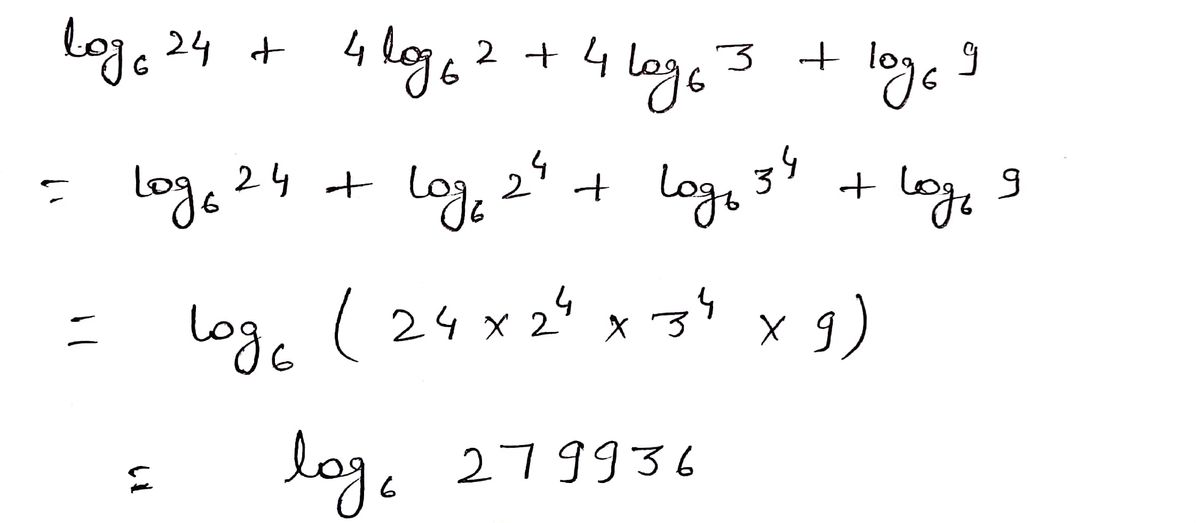 log₆ 24 + 4 log₆ 2 + 4 log₆ 3 + log₆ 9
= log₆ 24 + log₆ 2⁴ + log₆ 3⁴ + log₆ 9
= log₆ ( 24 × 2⁴ × 3⁴ × 9)
= log₆ 279936